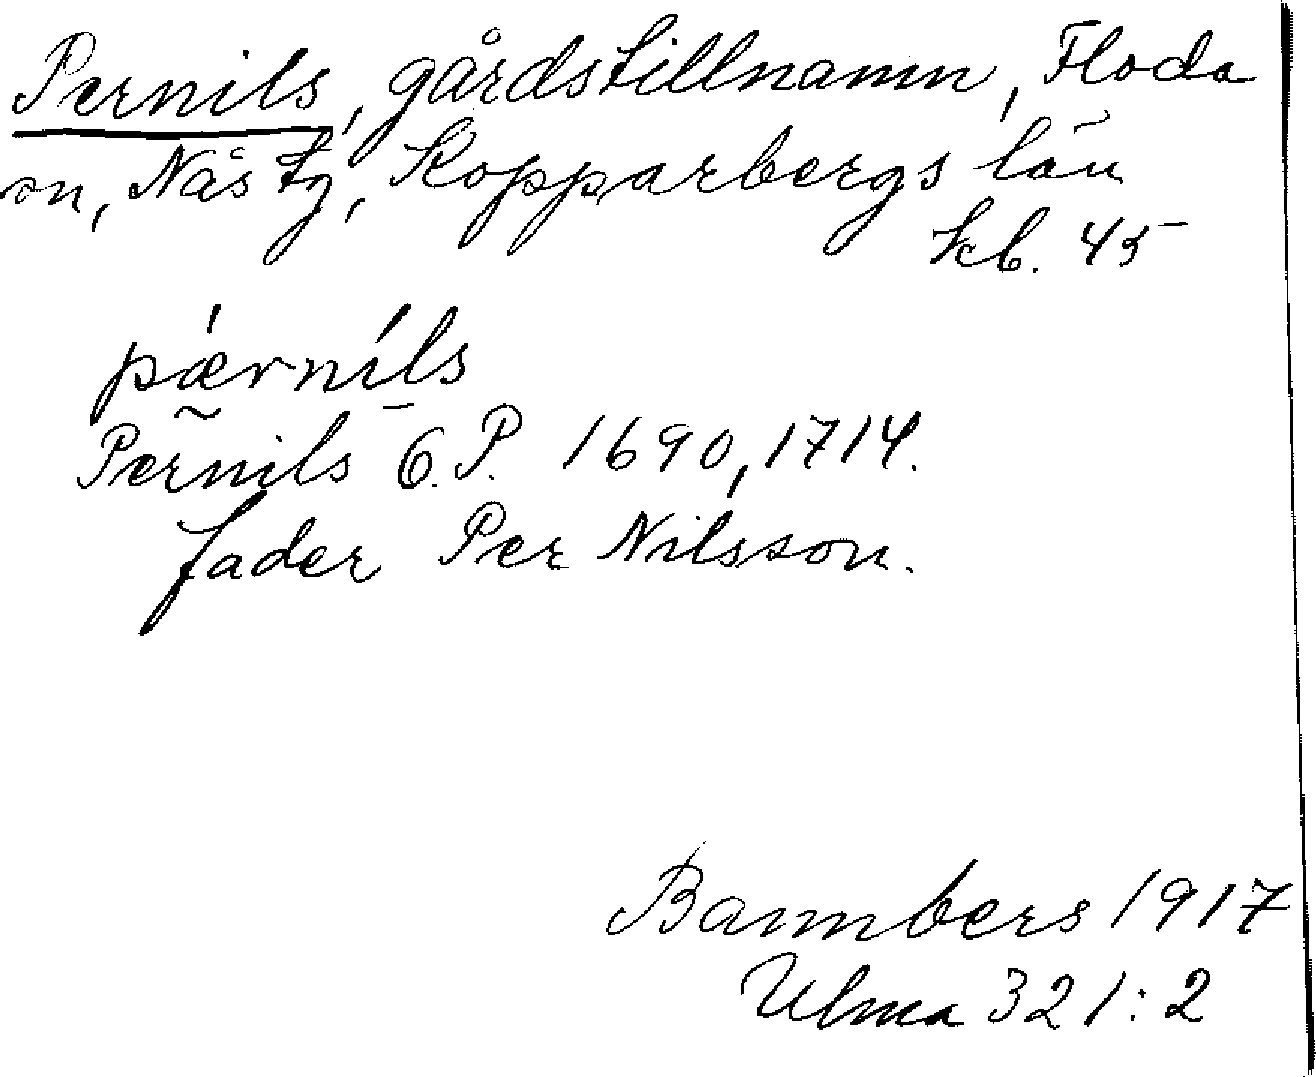 Pernils, gårdstillnamn, Floda
sn, Nås tg, Kopparbergs län
kb. 45
pærnils
Pernils G.P. 1690, 1714.
fader Per Nilsson.
Bannbers 1917
Ulma 321:2